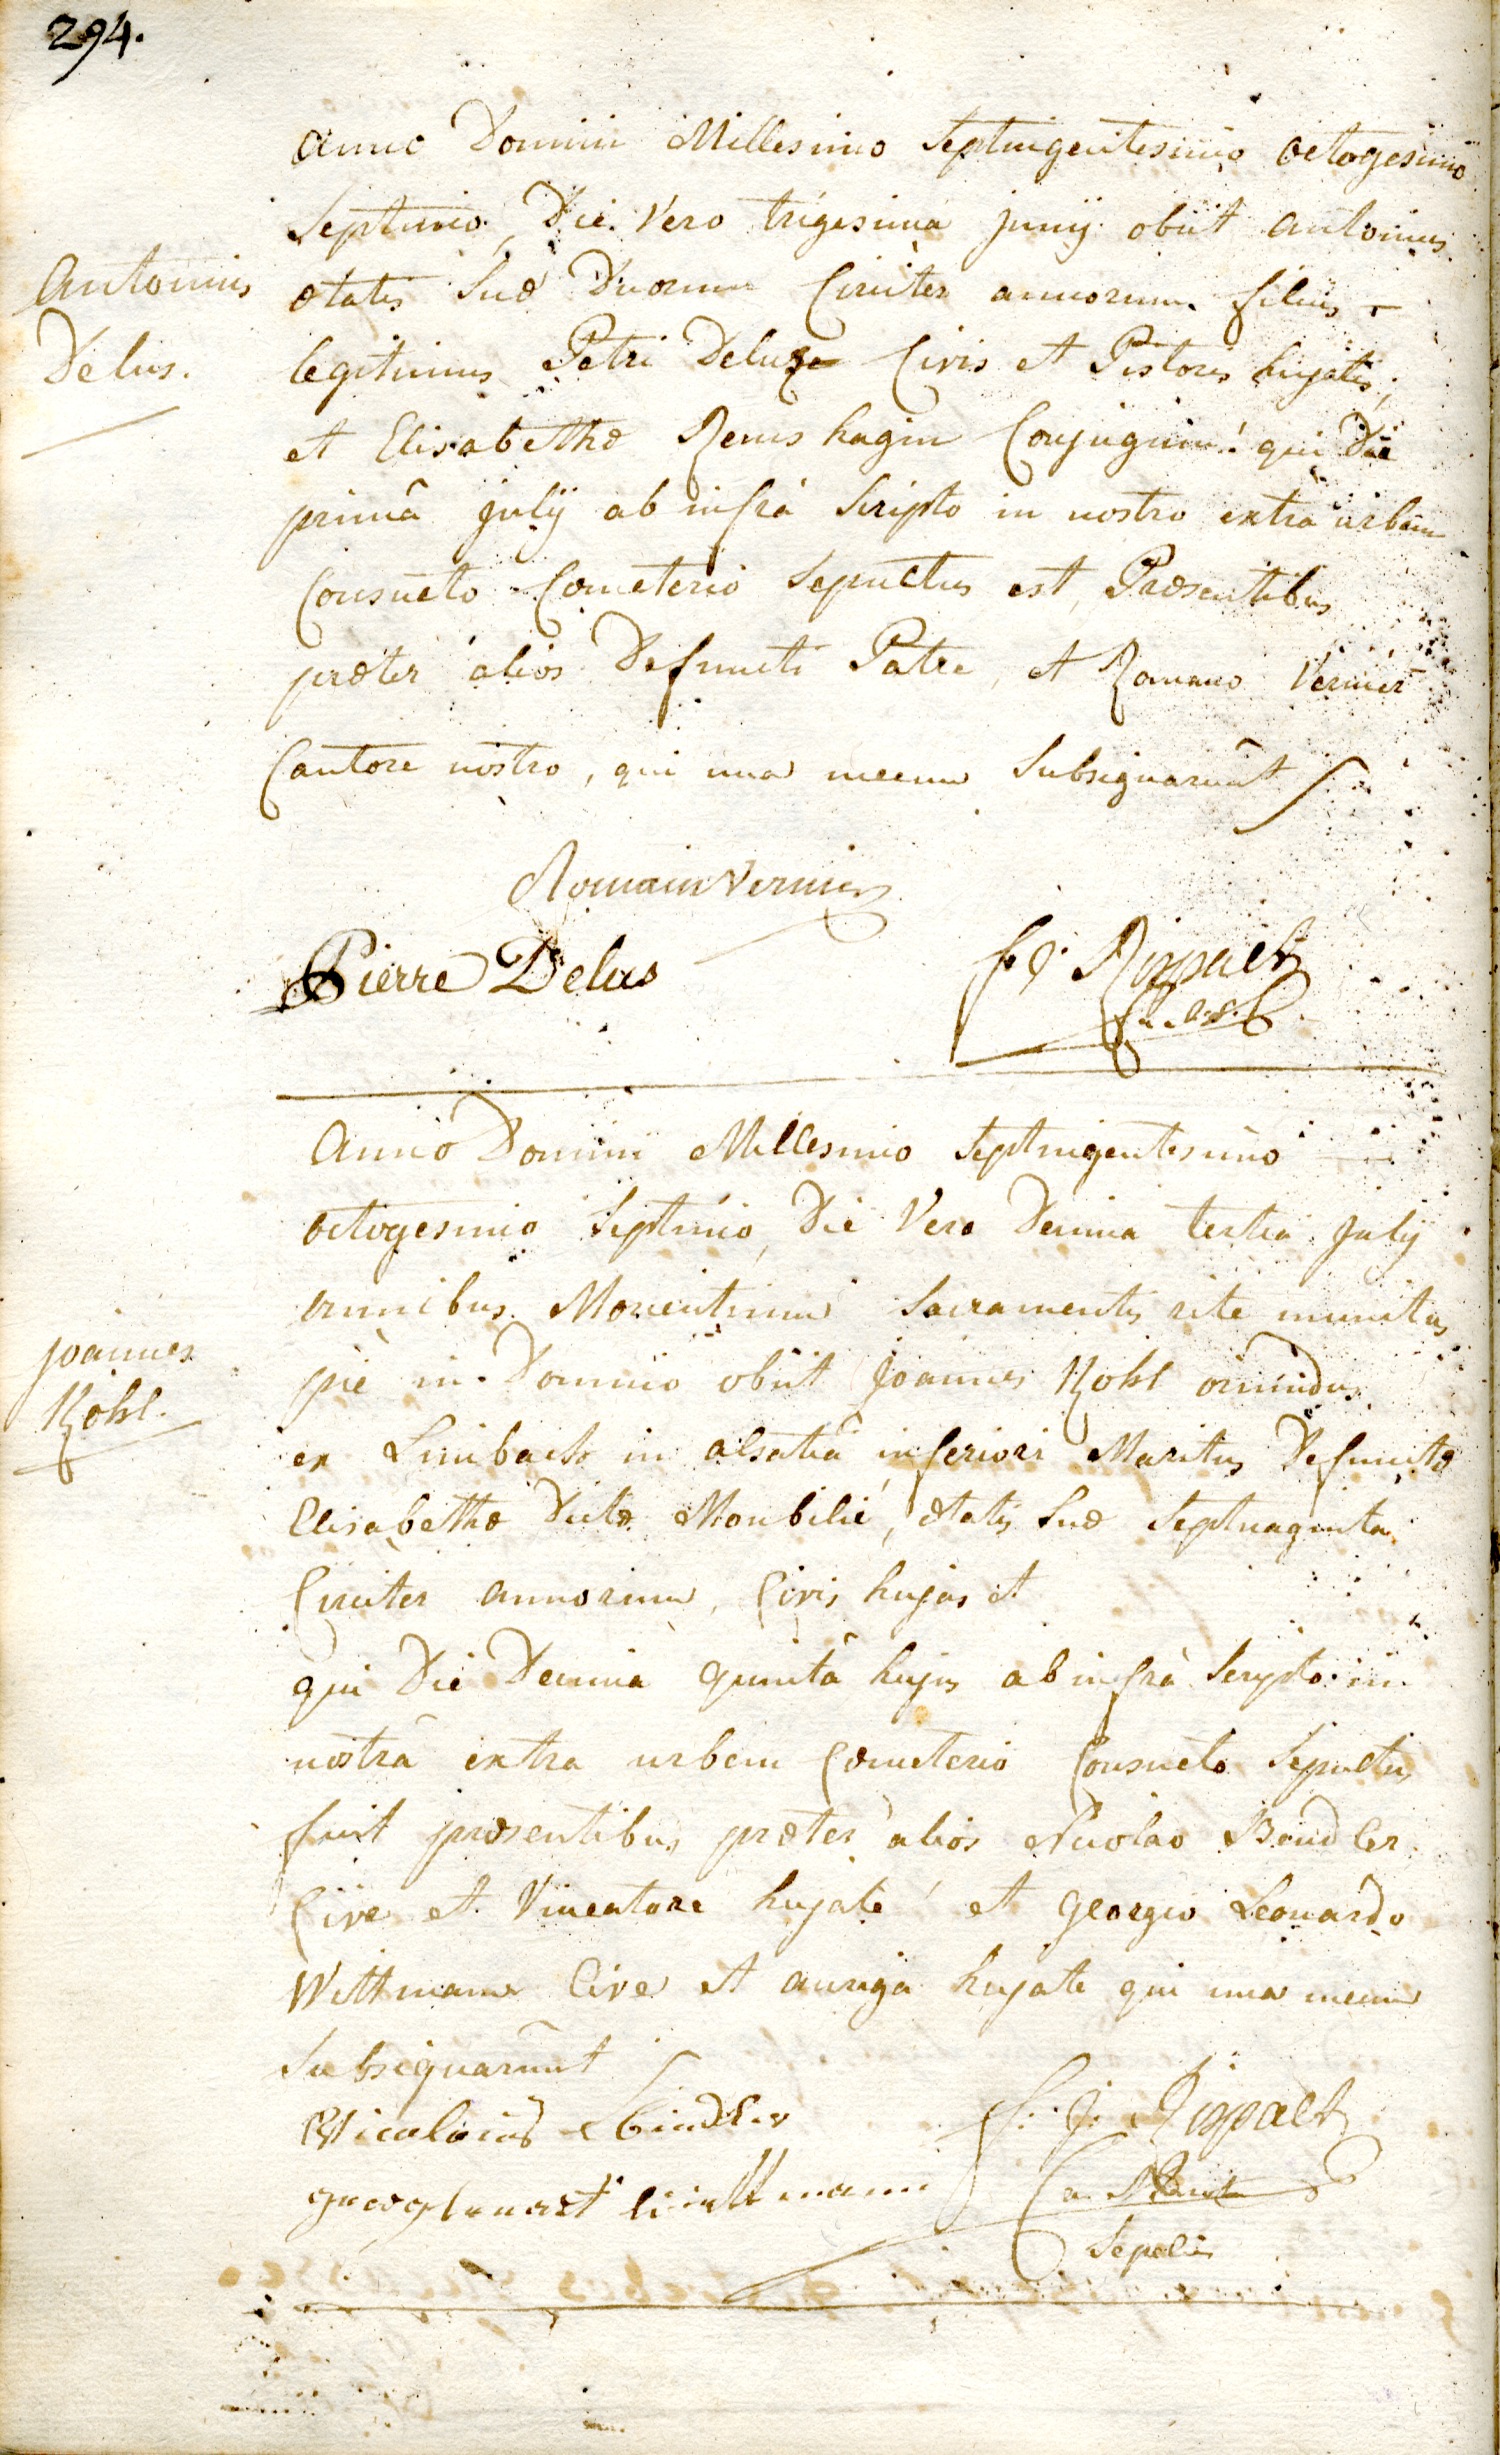 294.
Anno Domini Millesimo Septingentesimo octogesimo
Septimo, Die Vero trigesima Junij obiit Antonius
Antonius
ætatis Suæ Duorum Circiter annorum filius
Delus.
legitimus Petri Deluze Civis et Pistoris hujatis,
et Elisabethæ Renshagin Conjugum! qui Die
primâ Julij ab infrà Scripto in nostro extra urbem
Consueto Cœmeterio Sepultus est, Præsentibus
præter alios Defuncti Patre, et Romano Vernier
Cantore nostro, qui una mecum Subsignarunt
Romain Vernier
Pierre Delus
Anno Domini Millesimo Septingentesimo
octogesimo Septimo, Die Vero Decima tertia July
omnibus Morientium Sacramentis rite munitus
Joannes
piè in Domino obiit Joannes Kohl oriundus
Kohl.
ex Limbach in alsatiâ inferiori Maritus Defunctæ
Elisabethæ Dictæ Monbilié, ætatis Suæ Septuaginta
Circiter annorum, Civis hujas et
qui Die Decimâ quintâ hujus ab infrà Scripto in
nostrâ extra urbem Cœmeterio Consueto Sepultus
fuit præsentibus præter alios Nicolao Bendler
Cive et Vineatore hujate et Georgio Leonardo
Wittmann Cive et auriga hujate qui una mecum
Subsignarunt
Sepeli